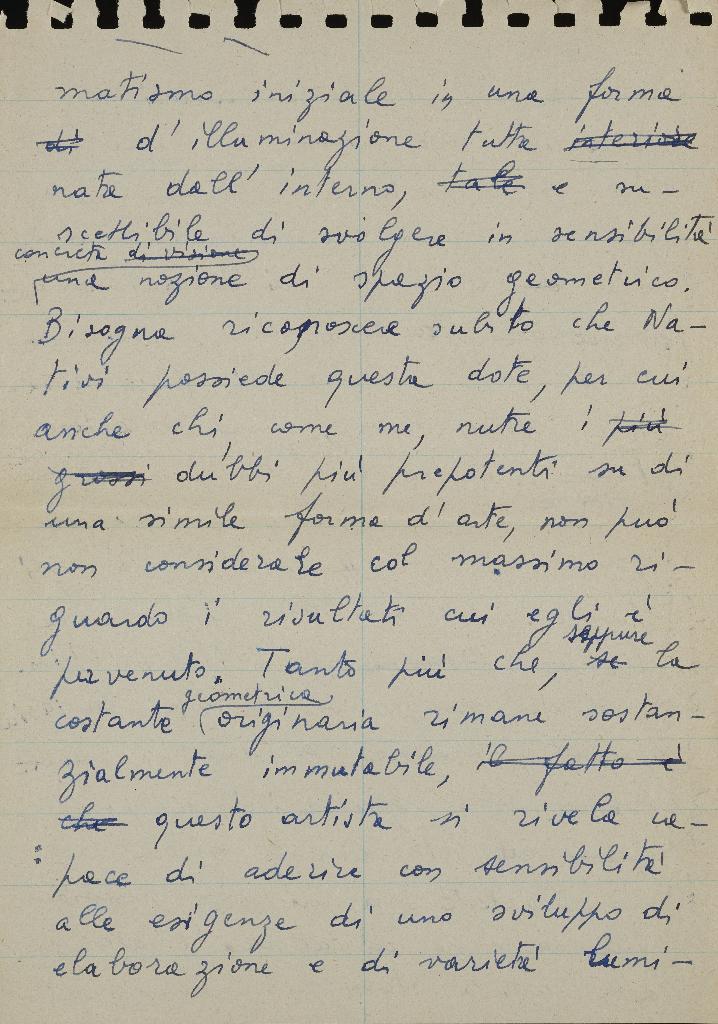 matismo iniziale in una forma
di d'illuminazione tutta interiore
nata dall'interno, tale e su-
scettibile di svolgere in sensibilità
concreta di visione
una nozione di spazio geometrico.
Bisogna riconoscere subito che Na-
tivi possiede questa dote, per cui
anche chi, come me, nutre i più
grossi dubbi più prepotenti su di
una simile forma d'arte, non può
non considerare col massimo ri-
guardo i risultati cui egli è
seppure
pervenuto. Tanto più che, se la
geometrica
costante originaria rimane sostan-
zialmente immutabile, il fatto è
che questo artista si rivela ca-
pace di aderire con sensibilità
alle esigenze di uno sviluppo di
elaborazione e di varietà lumi-